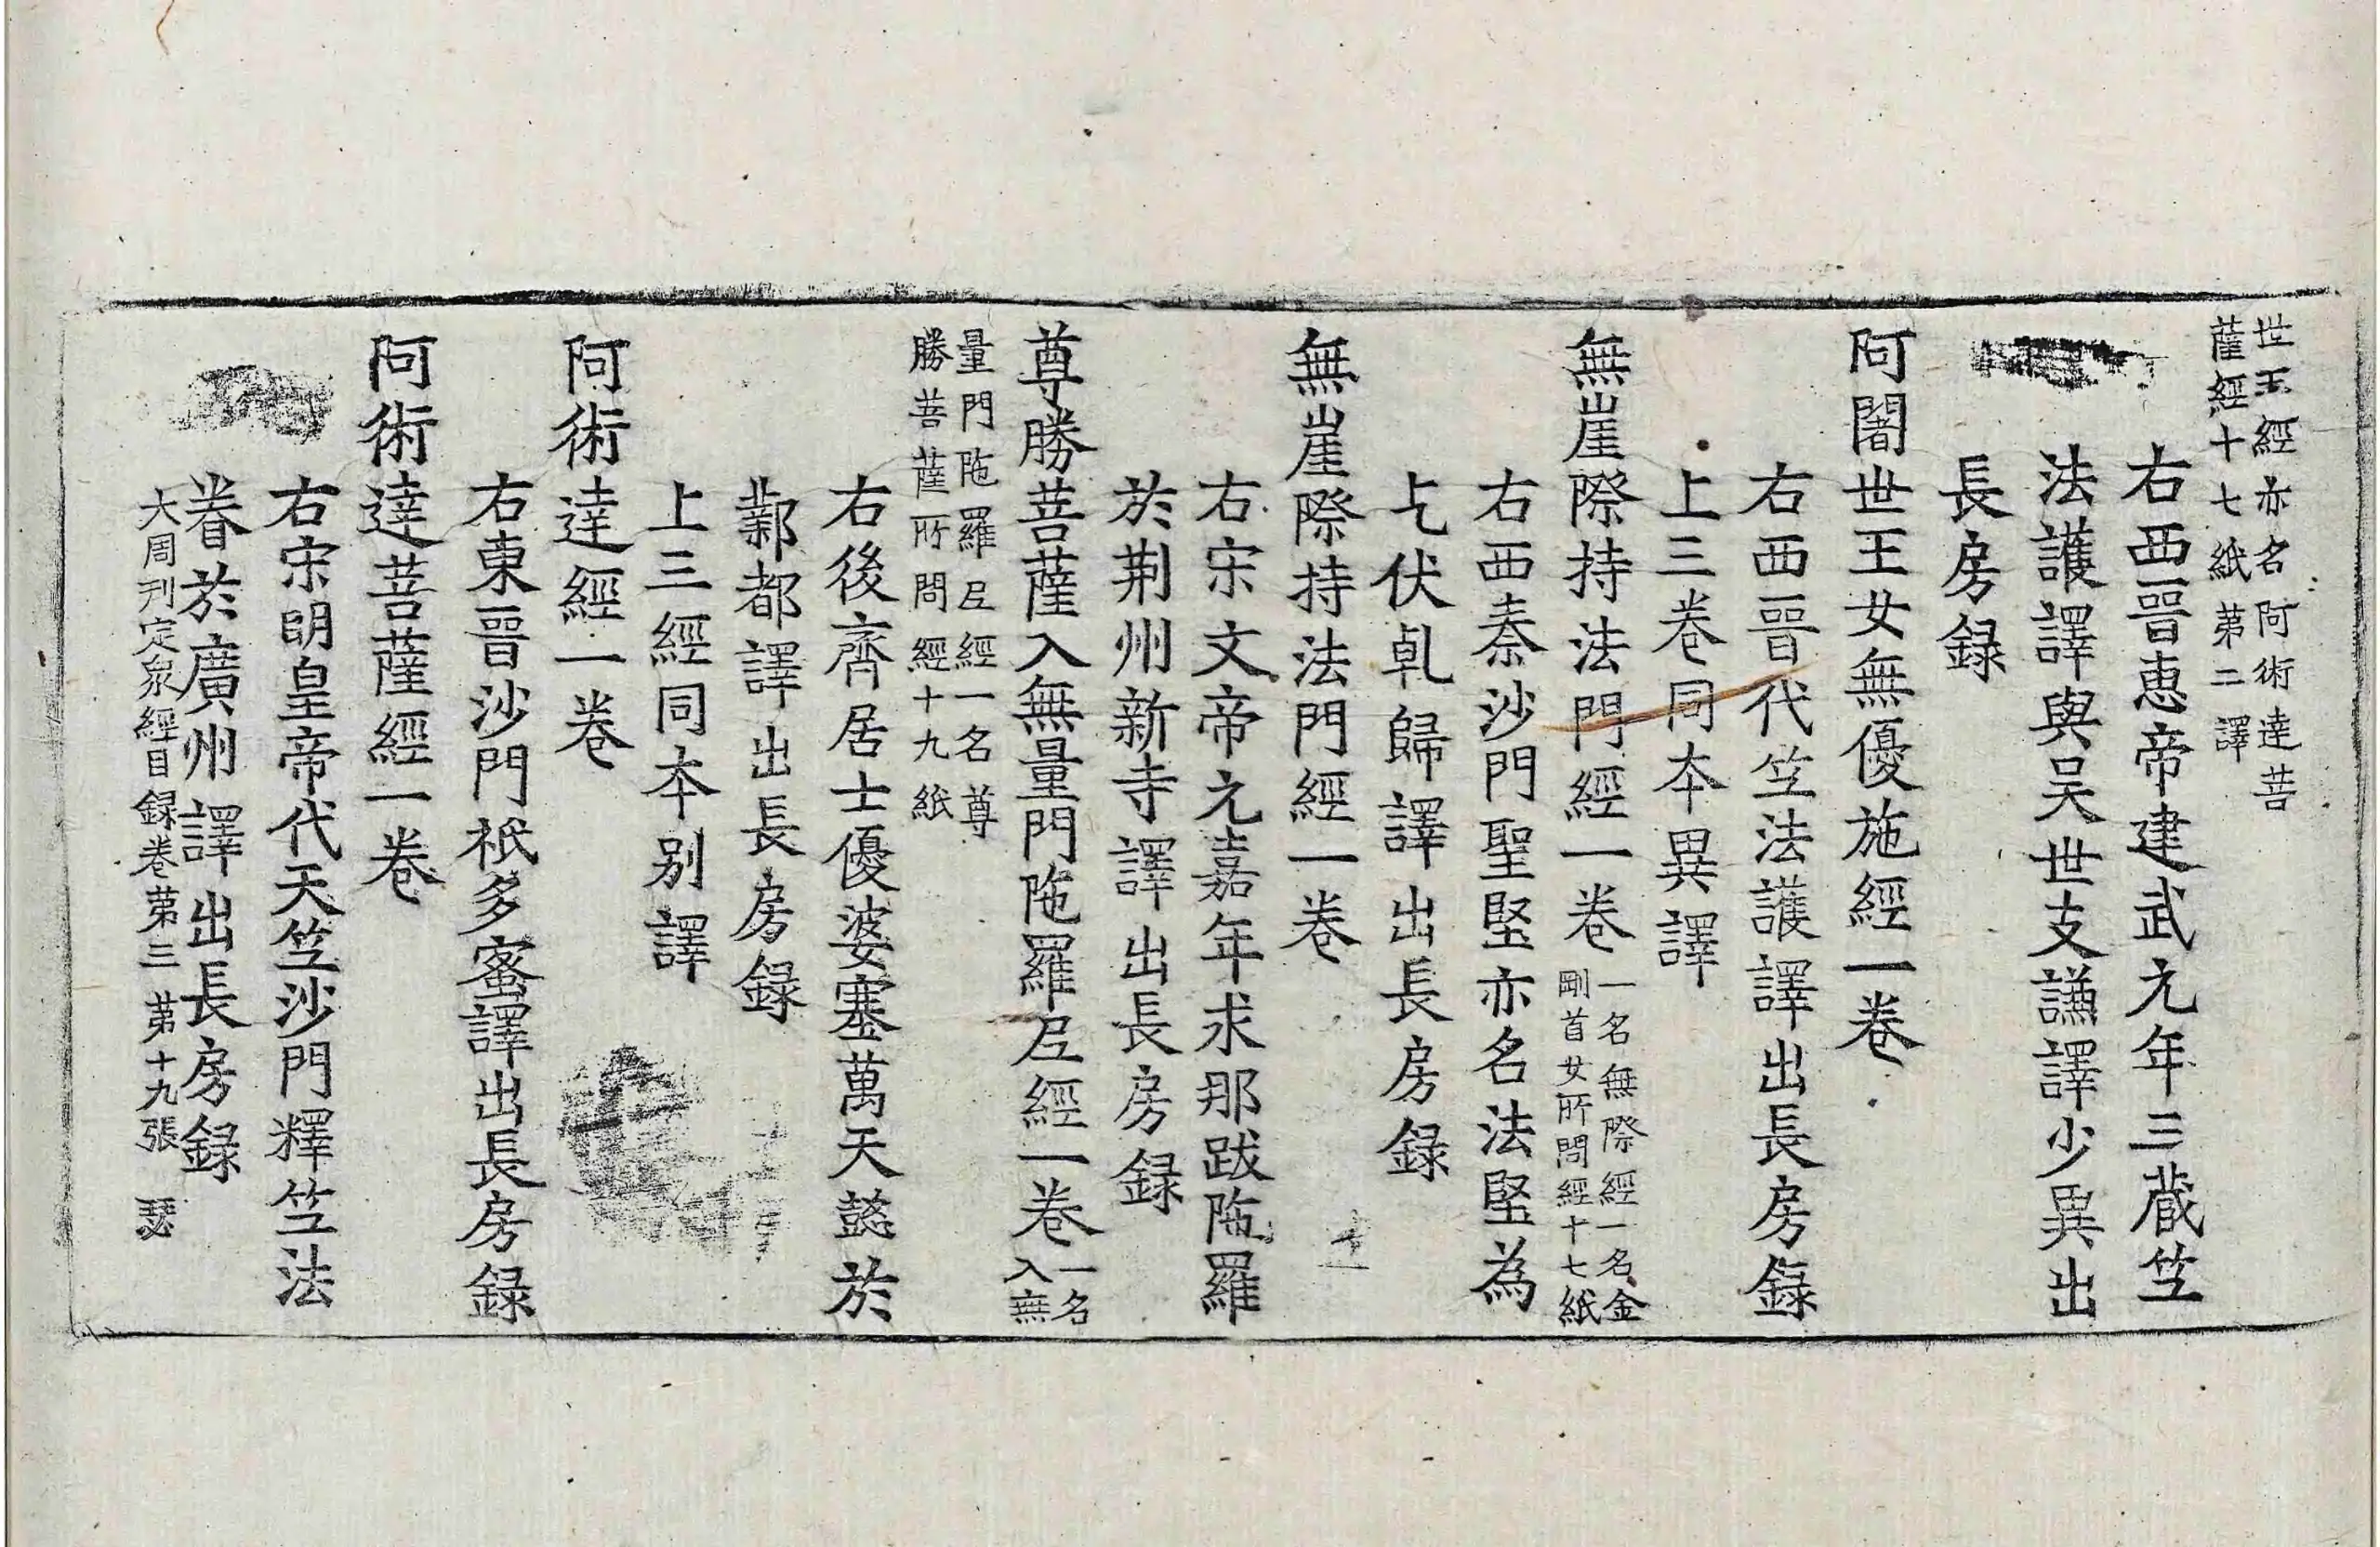 世王經亦名阿術達菩
薩經十七紙第二譯
右西晉惠帝建武元年三藏笁
法護譯與吴世支謙譯少異出
長房録
阿闍世王女無優施經一卷
右西晉代笁法護譯出長房録
上三卷同本異譯
無崖際持法門經一卷
一名無際經一名金
剛首女所問經十七紙
右西秦沙門聖堅亦名法堅為
乞伏乹歸譯出長房録
無崖際持法門經一卷
右宋文帝元嘉年求那跋陁羅
於荆州新寺譯出長房録
尊勝菩薩入無量門陁羅尼經一卷
一名
入無
量門陁羅尼經一名尊
勝菩薩所問經十九紙
右後齊居士優婆塞萬天懿於
鄴都譯出長房録
上三經同本别譯
阿術達經一卷
右東晉沙門祇多蜜譯出長房録
阿術達菩薩經一卷
右宋明皇帝代天笁沙門釋笁法
眷於廣州譯出長房録
大周刋定衆經目録卷第三 第十九張 瑟